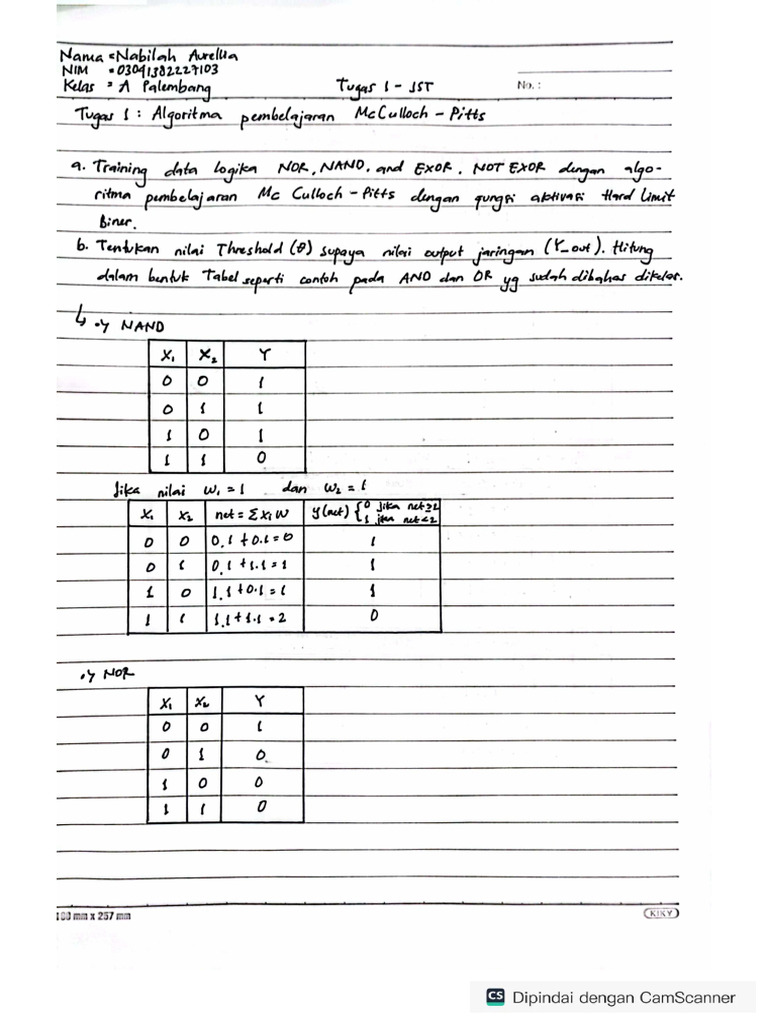 Nama = Nabilah Aurellia
NIM = 03041382227103
Kelas = A Palembang Tugas 1 - JST No. :
Tugas 1 : Algoritma pembelajaran McCulloch - Pitts
a. Training data logika NOR, NAND, and EXOR, NOT EXOR dengan algo-
ritma pembelajaran Mc Culloch - Pitts dengan fungsi aktivasi Hard Limit
Biner.
b. Tentukan nilai Threshold (θ) supaya nilai output jaringan (Y_out). Hitung
dalam bentuk Tabel seperti contoh pada AND dan OR yg sudah dibahas dikelas.
↳ •) NAND
X₁ X₂ Y
0 0 1
0 1 1
1 0 1
1 1 0
Jika nilai W₁ = 1 dan W₂ = 1
X₁ X₂ net = Σ X₁ W y(net) { 0 jika net ≥ 2
1 jika net < 2
0 0 0.1 + 0.1 = 0 1
0 1 0.1 + 1.1 = 1 1
1 0 1.1 + 0.1 = 1 1
1 1 1.1 + 1.1 = 2 0
•) NOR
X₁ X₂ Y
0 0 1
0 1 0
1 0 0
1 1 0
180 mm x 257 mm KIKY
CS Dipindai dengan CamScanner